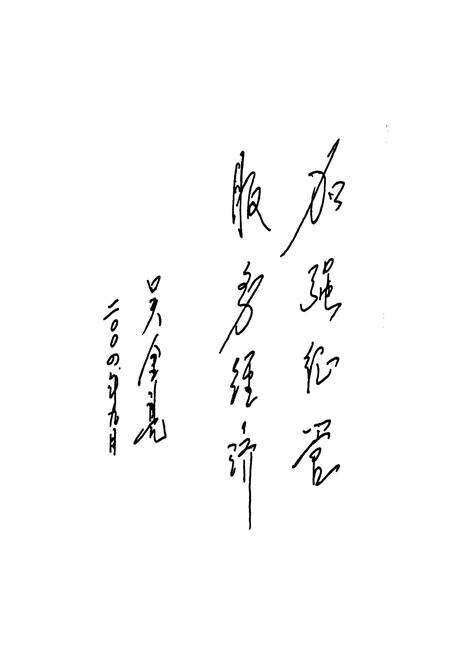 加强征管
服务经济
吴金亮
二〇〇四年九月